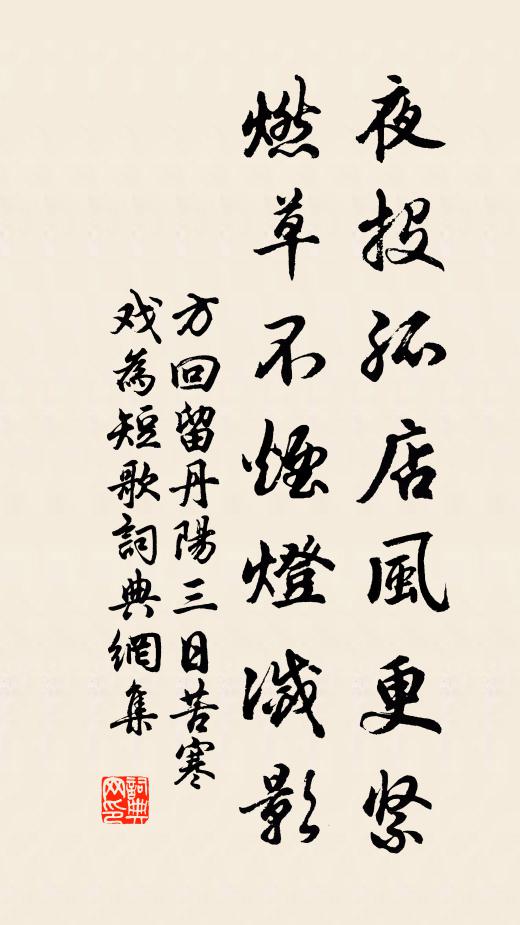 夜投孤店風更紧
燃草不煙燈滅影
方回留丹陽三日苦寒
戏為短歌詞典網集
詞典网印